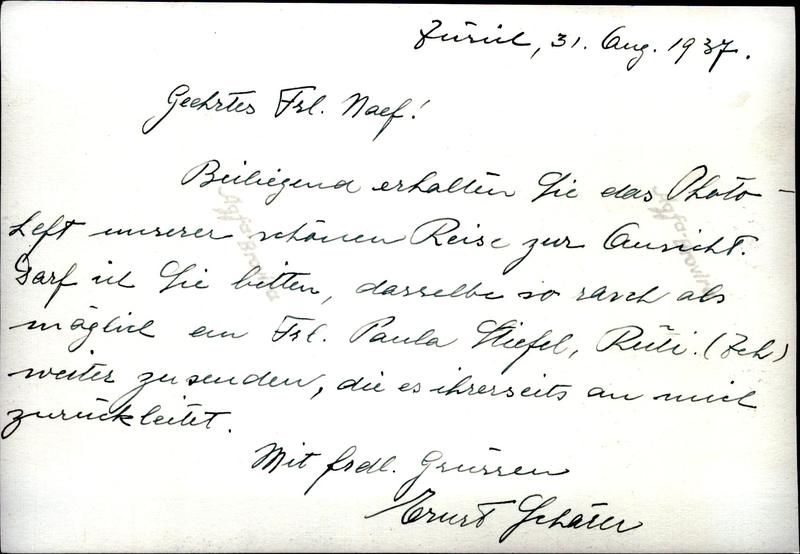 Zürich, 31. Aug. 1937.
Geehrtes Frl. Naef!
Beiliegend erhalten Sie das Photo-
heft unserer schönen Reise zur Ansicht.
Darf ich Sie bitten, dasselbe so rasch als
möglich an Frl. Paula Stiefel, Rüti. (Zch)
weiter zu senden, die es ihrerseits an mich
zurückleitet.
Mit frdl. Grüssen
Ernst
Agfa-Brovira
Agfa-Brovira